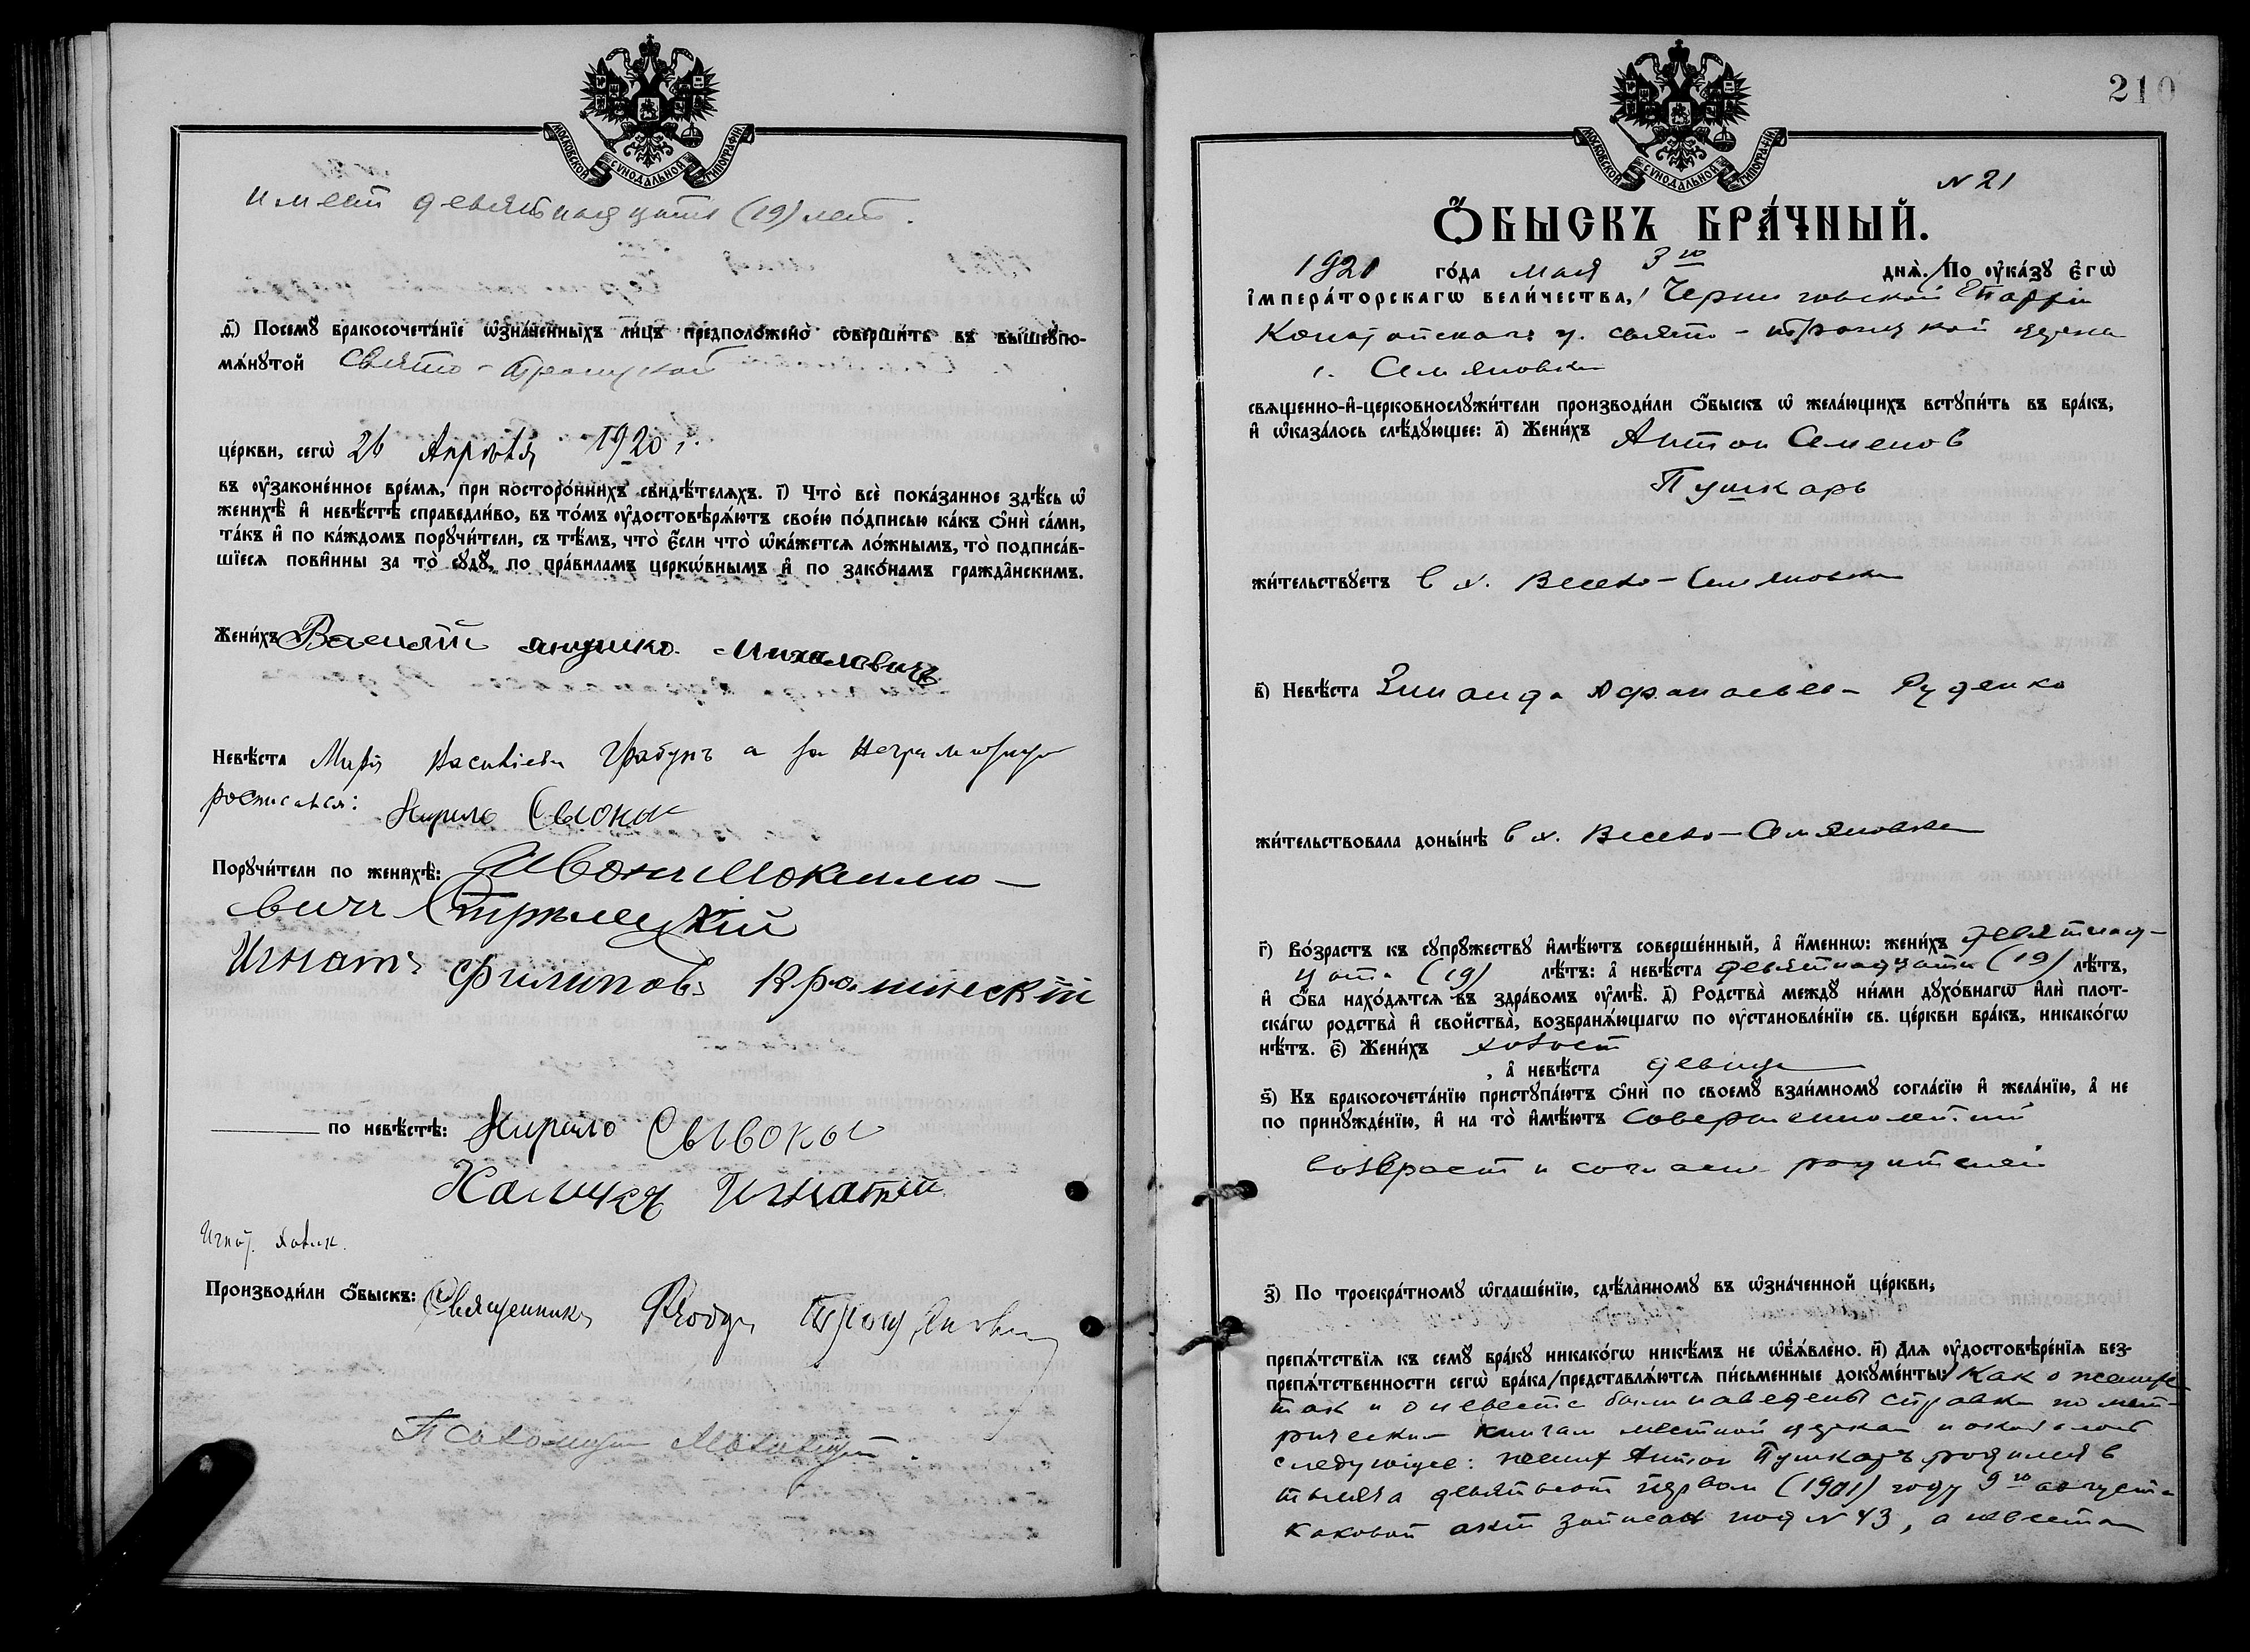 МОСКОВСКОЙ СѴНОДАЛЬНОЙ ТИПОГРАФІИ
имеет девятнадцать (19) лет.
д҃і) Посемꙋ̀ бракосочета́нїе ѡ҆зна́ченныхъ ли́цъ предполо́жено соверши́ть въ вышеꙋпо-
мѧ́нꙋтой Свято-Троицкой
це́ркви, сегѡ̀ 26 Апрѣля 1920 г.
въ ᲂу҆зако́ненное вре́мѧ, при посторо́ннихъ свидѣ́телѧхъ. і҃) Что̀ всѐ пока́занное здѣ́сь ѡ҆
женихѣ̀ и҆ невѣ́стѣ справедли́во, въ то́мъ ᲂу҆достовѣрѧ́ютъ свое́ю по́дписью ка́къ ѻ҆нѝ са́ми,
та́къ и҆ по ка́ждомъ порꙋчи́тели, съ тѣ́мъ, что̀ є҆́сли что̀ ѡ҆ка́жетсѧ ло́жнымъ, то̀ подписа́в-
шїесѧ пови́нны за то̀ сꙋдꙋ̀, по пра́виламъ церкѡ́внымъ и҆ по зако́намъ гражда́нскимъ.
Жени́хъ Михаловичъ
Невѣ́ста Васильева а за неграмотную
росписался: Кирило Сывокы
Порꙋчи́тели по женихѣ̀: Иванъ
вичъ Стрилецкій
Игнатъ Филиповъ
по невѣ́стѣ: Кирило Сывокы
Игнатій
Производи́ли ѻ҆́быскъ: Священникъ
Псаломщик
210
МОСКОВСКОЙ СѴНОДАЛЬНОЙ ТИПОГРАФІИ
N 21
Ѻ҆́БЫСКЪ БРА́ЧНЫЙ.
1921 го́да мая 3го днѧ̀. По ᲂу҆ка́зꙋ є҆гѡ̀
і҆мпера́торскагѡ вели́чества, Черниговской Епархіи
Конотопскаго у. свято-троицкой церкви
с. Семяновки
свѧще́нно-и҆-церковнослꙋжи́тели производи́ли ѻ҆́быскъ ѡ҆ жела́ющихъ встꙋпи́ть въ бра́къ,
и҆ ѡ҆каза́лось слѣ́дꙋющее: а҃) Жени́хъ Антон Семенов
Пушкарь
жи́тельствꙋетъ в х. Весело-Семяновке
в҃) Невѣ́ста Зинаида Афанасьева Руденко
жи́тельствовала доны́нѣ в х. Весело-Семяновке
г҃) Во́зрастъ къ сꙋпрꙋ́жествꙋ и҆мѣ́ютъ соверше́нный, а҆ и҆́меннѡ: жени́хъ девятнад-
цать (19) лѣ́тъ: а҆ невѣ́ста девятнадцать (19) лѣ́тъ,
и҆ ѻ҆́ба нахо́дѧтсѧ въ здра́вомъ ᲂу҆мѣ̀. д҃) Родства̀ междꙋ̀ ни́ми дꙋхо́внагѡ и҆лѝ плот-
ска́гѡ родства̀ и҆ сво́йства̀, возбранѧ́ющагѡ по ᲂу҆становле́нїю св. це́ркви бра́къ, никако́гѡ
нѣ́тъ. є҃) Жени́хъ холост
, а҆ невѣ́ста девица
ѕ҃) Къ бракосочета́нїю пристꙋпа́ютъ ѻ҆нѝ по своемꙋ̀ взаи́мномꙋ согла́сїю и҆ жела́нїю, а҆ не
по принꙋжде́нїю, и҆ на то̀ и҆мѣ́ютъ совершеннолетний
возвраст и согласие родителей
з҃) По троекра́тномꙋ ѡ҆глаше́нїю, сдѣ́ланномꙋ въ ѡ҆зна́ченной це́ркви,
препѧ́тствїѧ къ семꙋ̀ бра́кꙋ никако́гѡ никѣ́мъ не ѡ҆б̾ѧ́влено. и҃) Длѧ ᲂу҆достовѣре́нїѧ без-
препѧ́тственности сегѡ̀ бра́ка/представлѧ́ютсѧ пи́сьменные докꙋме́нты:/ Как о женихе
так и о невесте были наведены справки по мет-
рическим книгам местной церкви и оказалось
следующее: жених Антон Пушкарь родился в
тысяча девятьсот первом (1901) году 9го августа
каковой акт записан под N 43, а невеста